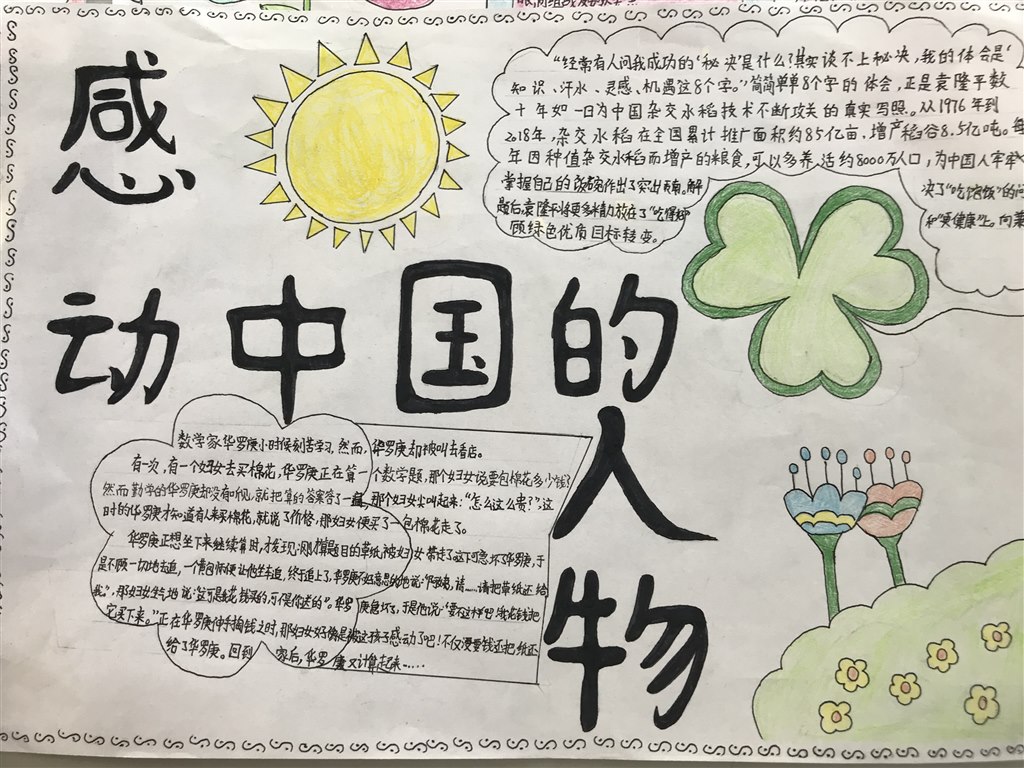 感
动中国的
人
物
"经常有人问我成功的'秘决'是什么?其实谈不上秘决,我的体会是'
知识、汗水、灵感、机遇这8个字。"简简单单8个字的体会,正是袁隆平数
十年如一日为中国杂交水稻技术不断攻关的真实写照。从1976年到
2018年,杂交水稻在全国累计推广面积约85亿亩,增产稻谷8.5亿吨。每
年因种值杂交水稻而增产的粮食,可以多养活约8000万人口,为中国人牢牢
掌握自己的作出了突出贡献。解
决了"吃饱饭"的问
题后袁隆平将更多精力放在了"吃得好
和"更健康"上。向
顾绿色优质目标转变。
数学家华罗庚小时候刻苦学习,然而,华罗庚却被叫去看店。
有一次,有一个妇女去买棉花,华罗庚正在算一个数学题,那个妇女说要包棉花多少钱?
然而勤学的华罗庚却没有听见,就把算的答案答了一遍,那个妇女尖叫起来:"怎么这么贵?",这
时的华罗庚才知道有人来买棉花,就说了价格,那妇女便买了一包棉花走了。
华罗庚正想坐下来继续算时,才发现:刚才算题目的草纸,被妇女带走了这下可急坏了华罗庚,于
是不顾一切地去追,终于追上了,华罗庚不好意思地说:"阿姨,请……请把草纸还给
我",那妇女生气地说:"这可是我花钱买的,可不是你送的"。华罗庚急坏了,于是他说:"要不这样吧!我花钱把
它买下来。"正在华罗庚伸手掏钱之时,那妇女好像是被这孩子感动了吧!不仅没要钱还把纸还
给了华罗庚。回到家后,华罗庚又计算起来……